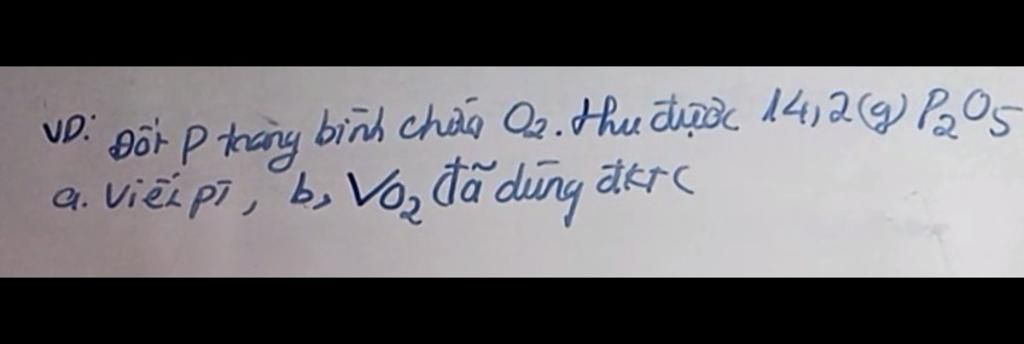 VD: Đốt P trong bình chứa O₂. thu được 14,2(g) P₂O₅
a. Viết pT, b, VO₂ đã dùng đktc